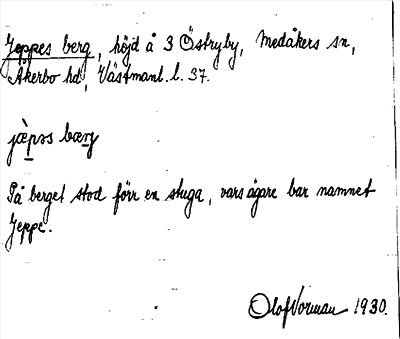 Jeppes berg, höjd å 3 Östryby, Medåkers sn,
Åkerbo hd, Västmanl. l. 37.
jæ̀pəs bærj
På berget stod förr en stuga, vars ägare bar namnet
Jeppe.
Olof Norman 1930.